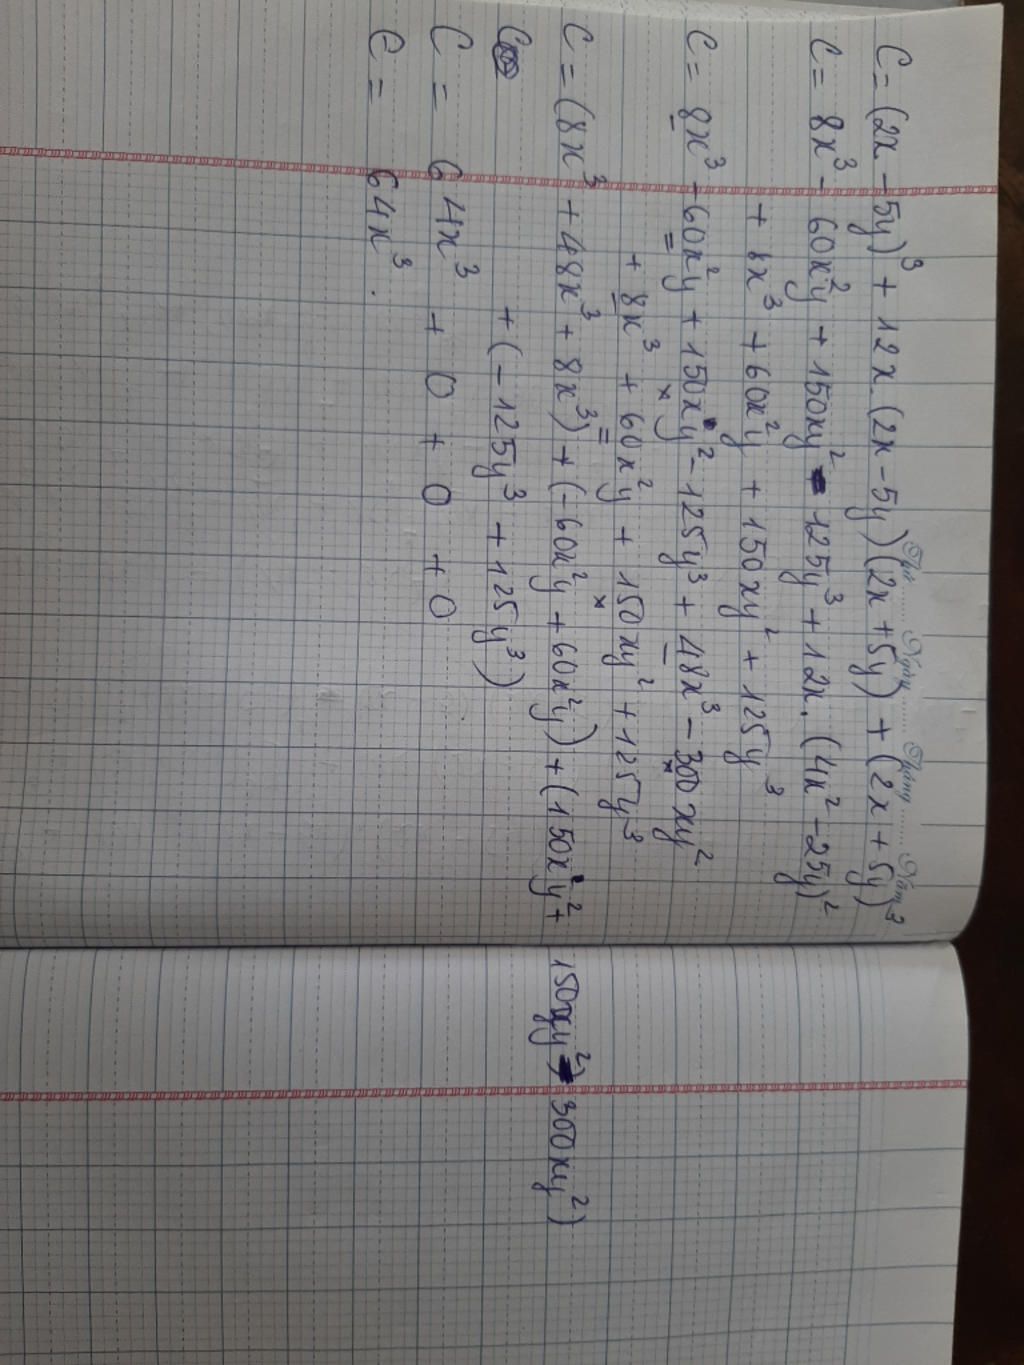 Thứ ........ Ngày ........ Tháng ........ Năm
C = (2x - 5y)³ + 12x.(2x - 5y)(2x + 5y) + (2x + 5y)³
C = 8x³ - 60x²y + 150xy² - 125y³ + 12x.(4x² - 25y)²
+ 8x³ + 60x²y + 150xy² + 125y³
C = 8x³ - 60x²y + 150xy² - 125y³ + 48x³ - 300xy²
+ 8x³ + 60x²y + 150xy² + 125y³
C = (8x³ + 48x³ + 8x³) + (-60x²y + 60x²y) + (150xy² + 150xy² - 300xy²)
+ (-125y³ + 125y³)
C = 64x³ + 0 + 0 + 0
C = 64x³.